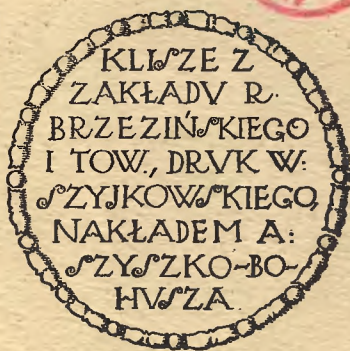 KLISZE Z
ZAKŁADV R.
BRZEZIŃSKIEGO
I TOW., DRVK W:
SZYJKOWSKIEGO,
NAKŁADEM A:
SZYSZKO-BO-
HVSZA